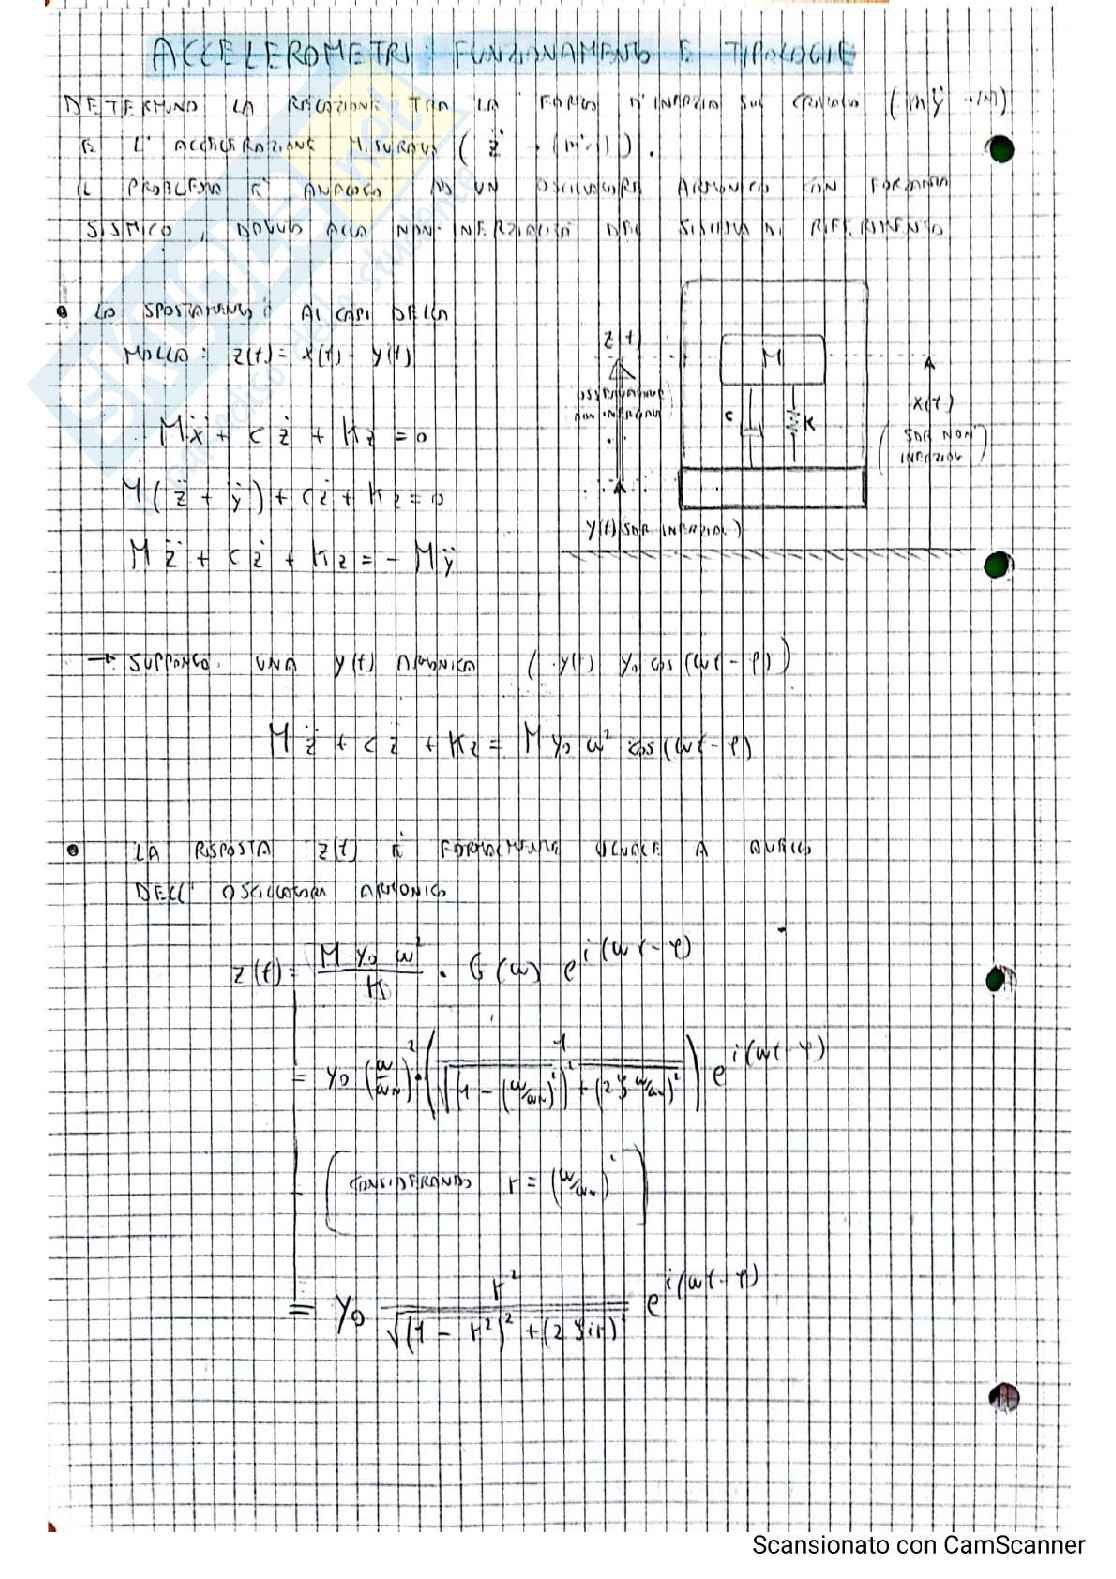 ACCELEROMETRI: FUNZIONAMENTO E TIPOLOGIE
DETERMINO LA RELAZIONE TRA LA FORZA D'INERZIA SUL (mÿ
E L'ACCELERAZIONE MISURATA ( z̈
IL PROBLEMA È ANALOGO AD UN OSCILLATORE ARMONICO CON FORZANTE
SISMICO, DOVUTO ALLA NON-INERZIALITÀ DEL SISTEMA DI RIFERIMENTO
• LO SPOSTAMENTO AI CAPI DELLA
MOLLA: z(t) = x(t) - y(t)
Mẍ + cż + Kz = 0
M(z̈ + ÿ) + cż + Kz = 0
Mz̈ + cż + Kz = - Mÿ
z(t)
OSSERVATORE
NON INERZIALE
M
c
K
x(t)
(SDR NON
INERZIALE)
y(t) (SDR INERZIALE)
→ SUPPONGO UNA y(t) ARMONICA ( y(t) y₀ cos(ωt - φ))
Mz̈ + cż + Kz = M y₀ ω² cos(ωt - φ)
• LA RISPOSTA z(t) È FORMALMENTE UGUALE A QUELLA
DELL'OSCILLATORE ARMONICO
z(t) = M y₀ ω² / K · G(ω) e^i(ωt - φ)
= y₀ (ω/ωn)² · (1 / √((1 - (ω/ωn)²)² + (2ξ ω/ωn)²)) e^i(ωt - φ)
(CONSIDERANDO r = (ω/ωn)²)
= y₀ r² / √((1 - r²)² + (2ξir) e^i(ωt - φ)
SKUOLA.net
Scansionato con CamScanner